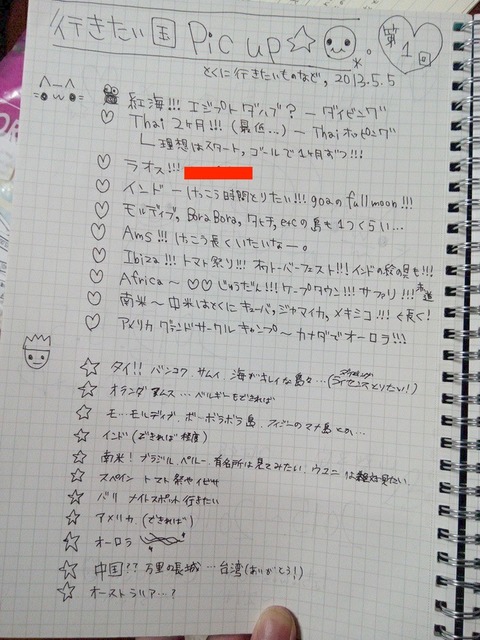 行きたい国 Pic up☆
第1回
とくに行きたいものなど, 2013.5.5
紅海!!! エジプト ダハブ? ー ダイビング
Thai 2ヶ月!!! (最低...) ー Thai ホッピング
理想はスタート, ゴールで1ヶ月ずつ!!!
♡ ラオス!!!
♡ インド ー けっこう時間とりたい!!! goaのfull moon!!!
♡ モルディブ, Bora Bora, タヒチ, etcの島も1つくらい...
♡ Ams!!! けっこう長くいたいなー。
♡ Ibiza!!! トマト祭り!!! オクトーバーフェスト!!! インドの粉の具も!!!
♡ Africa〜 ♡♡ じゅうだん!!! ケープタウン!!! サファリ!!! 赤道
♡ 南米〜中米はとくにキューバ, ジャマイカ, メキシコ!!! 長く!
♡ アメリカ グランドサークル キャンプ〜 カナダでオーロラ!!!
☆ タイ!! バンコク, サムイ, 海がキレイな島々...(ダイビングライセンスとりたい!)
☆ オランダ アムス ... ベルギーもできれば
☆ モ...モルディブ, ボーボラボラ島, フィジーのマナ島とか...
☆ インド (できれば程度)
☆ 南米! ブラジル, ペルー, 有名所は見てみたい, ウユニは絶対見たい.
☆ スペイン トマト祭やイビサ
☆ バリ ナイトスポット行きたい
☆ アメリカ (できれば)
☆ オーロラ
☆ 中国?? 万里の長城 ... 台湾(ありがとう!)
☆ オーストラリア...?